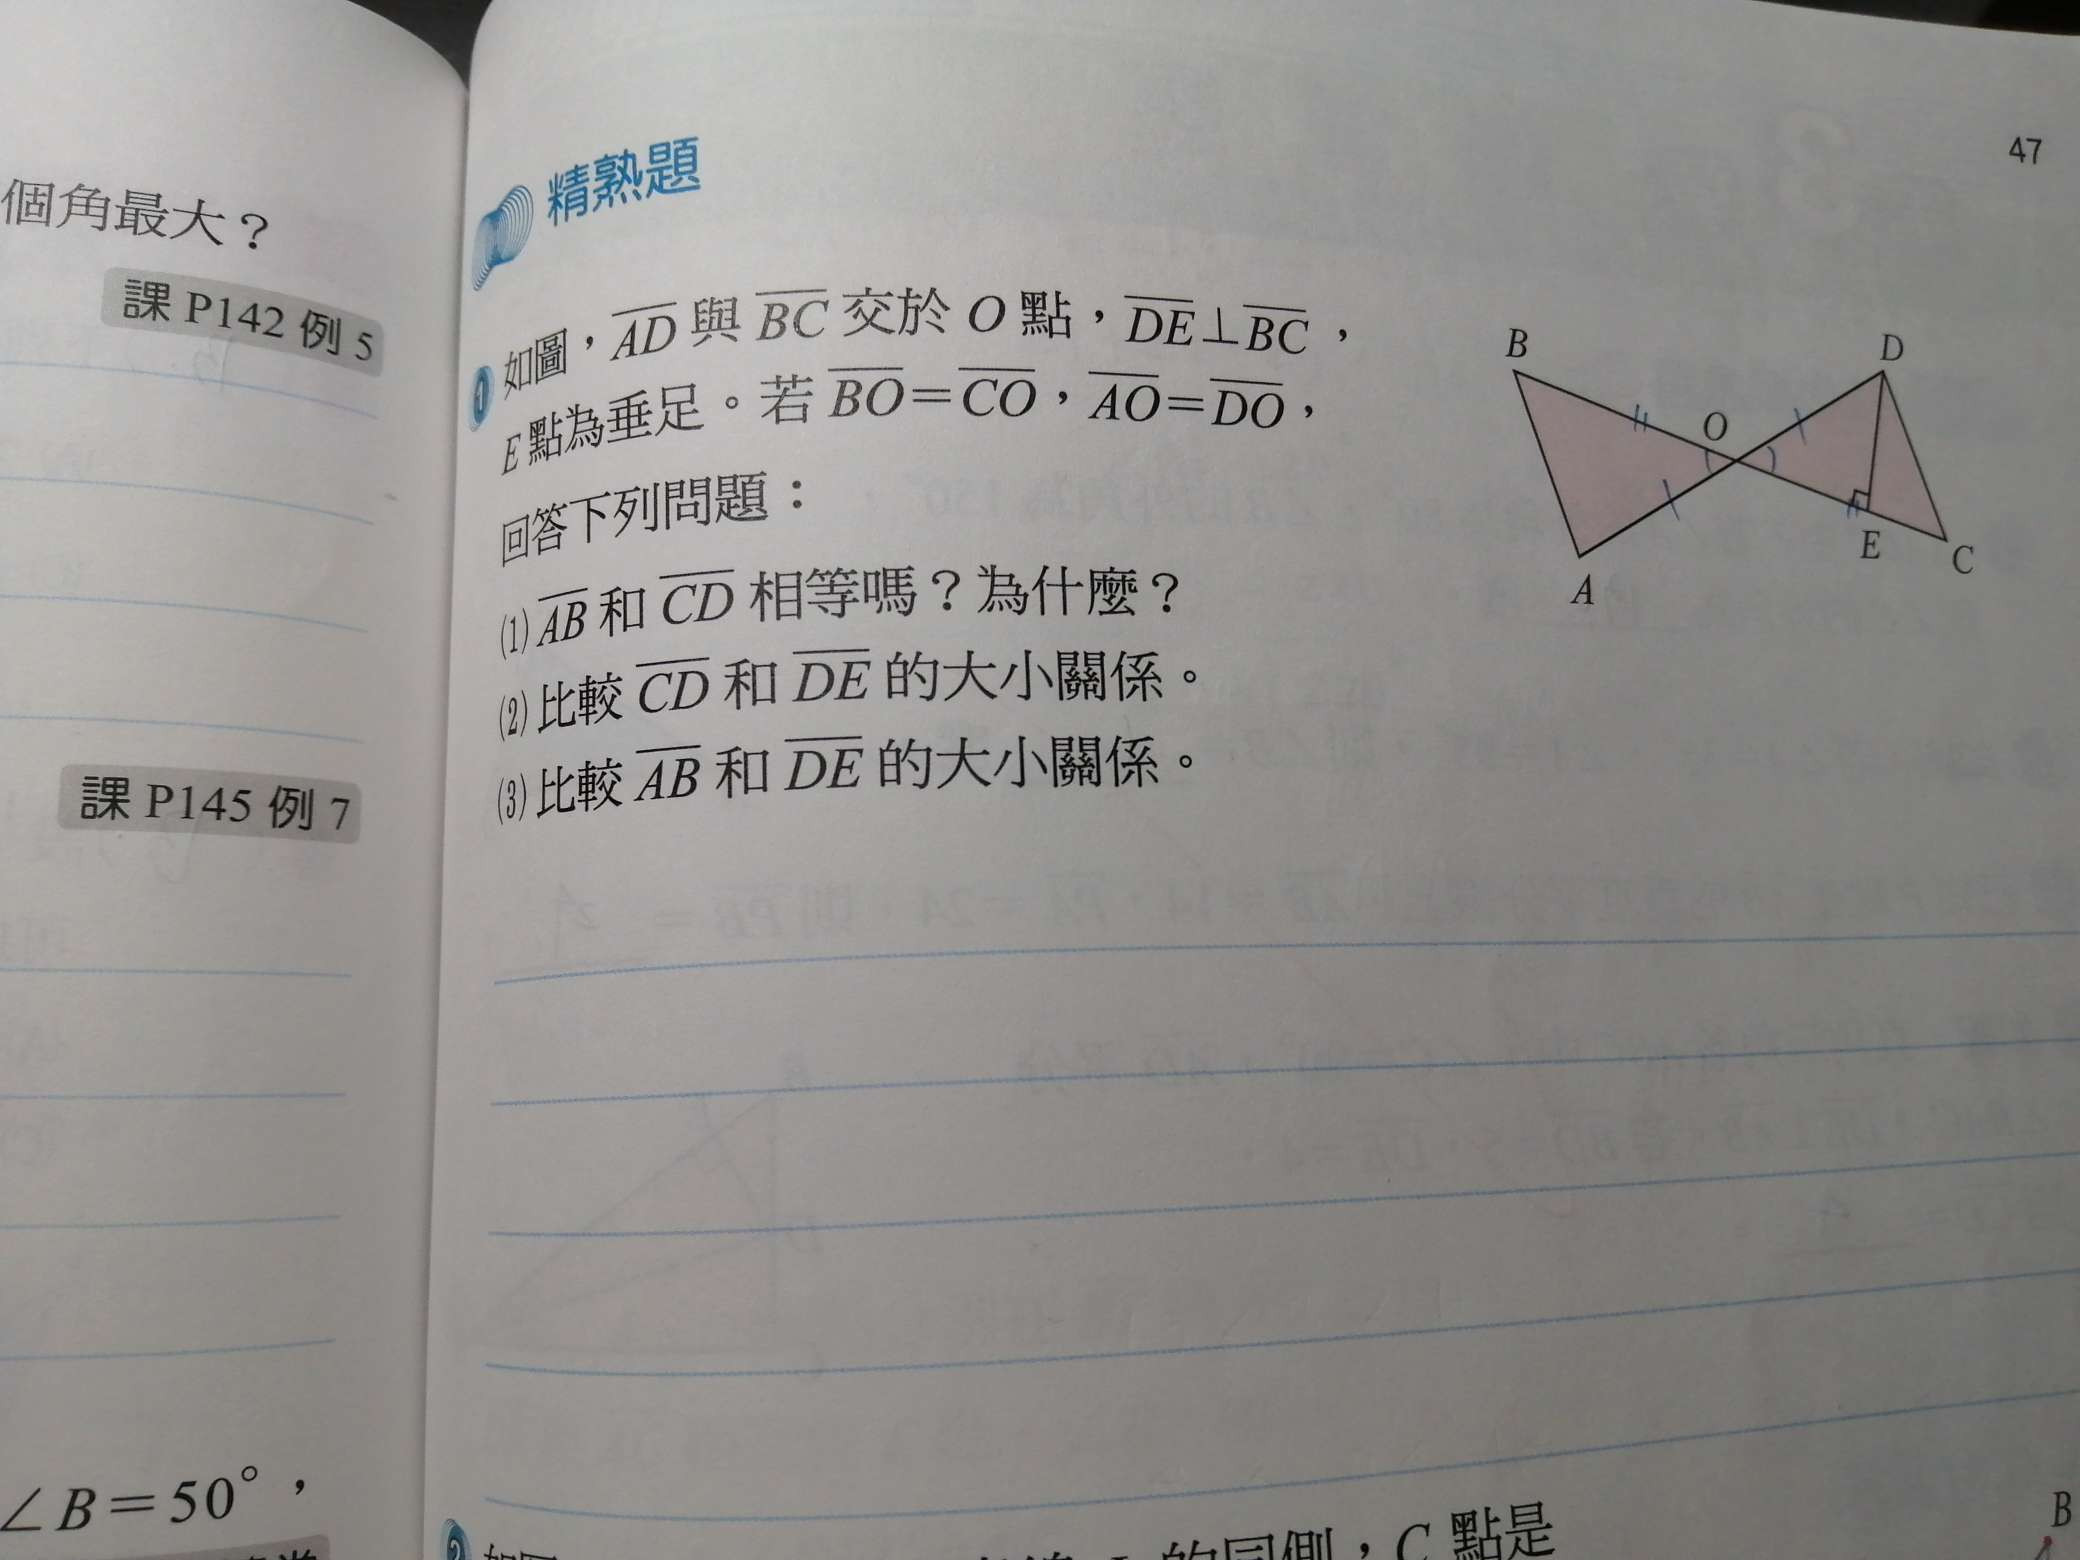 個角最大？
課 P142 例 5
課 P145 例 7
∠B＝50°，
47
精熟題
1 如圖，AD 與 BC 交於 O 點，DE⊥BC，
E 點為垂足。若 BO＝CO，AO＝DO，
回答下列問題：
(1) AB 和 CD 相等嗎？為什麼？
(2) 比較 CD 和 DE 的大小關係。
(3) 比較 AB 和 DE 的大小關係。
B
D
O
E
C
A
2
的同側，C 點是
B